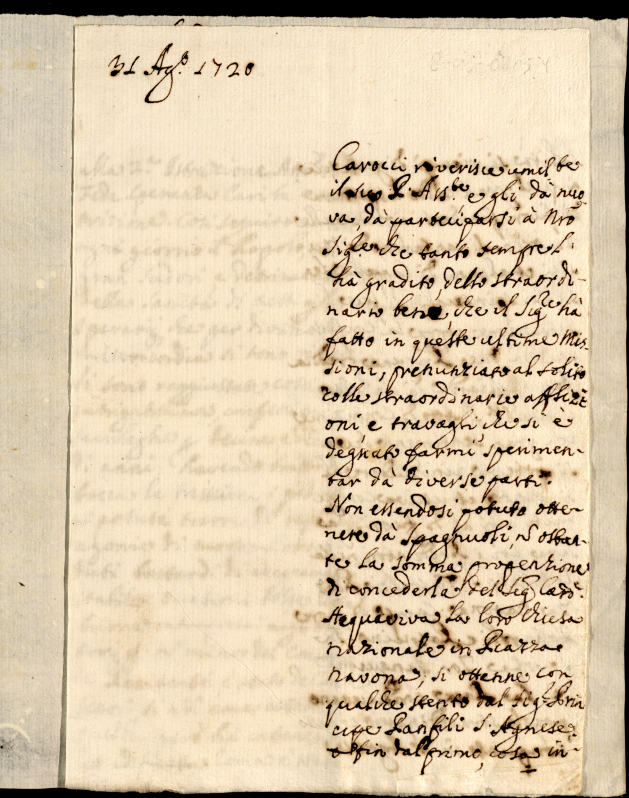 31 Ag.º 1720
Carocci riverisce umil.te
il suo P. Ass.te e gli dà nuo
va, dà parteciparsi à Nrõ
Sig.re che tanto sempre l'
hà gradito, dello straordi-
nario bene, che il Sig.re hà
fatto in queste ultime Mis-
sioni, prenunziato al solito
colle straordinarie afflizi
oni, e travagli, che si è
degnato farmi sperimen-
tar dà diverse parti.
Non essendosi potuto otte-
nere dà Spagnuoli, nõ ostan-
te la somma propenzione
di concederla del Sig. Card.
Acquaviva la loro Chiesa
nazionale in Piazza
navona, si ottenne con
qualche stento dal Sig. Prin
cipe Panfili S. Agnese
fin dal primo, cosa in-